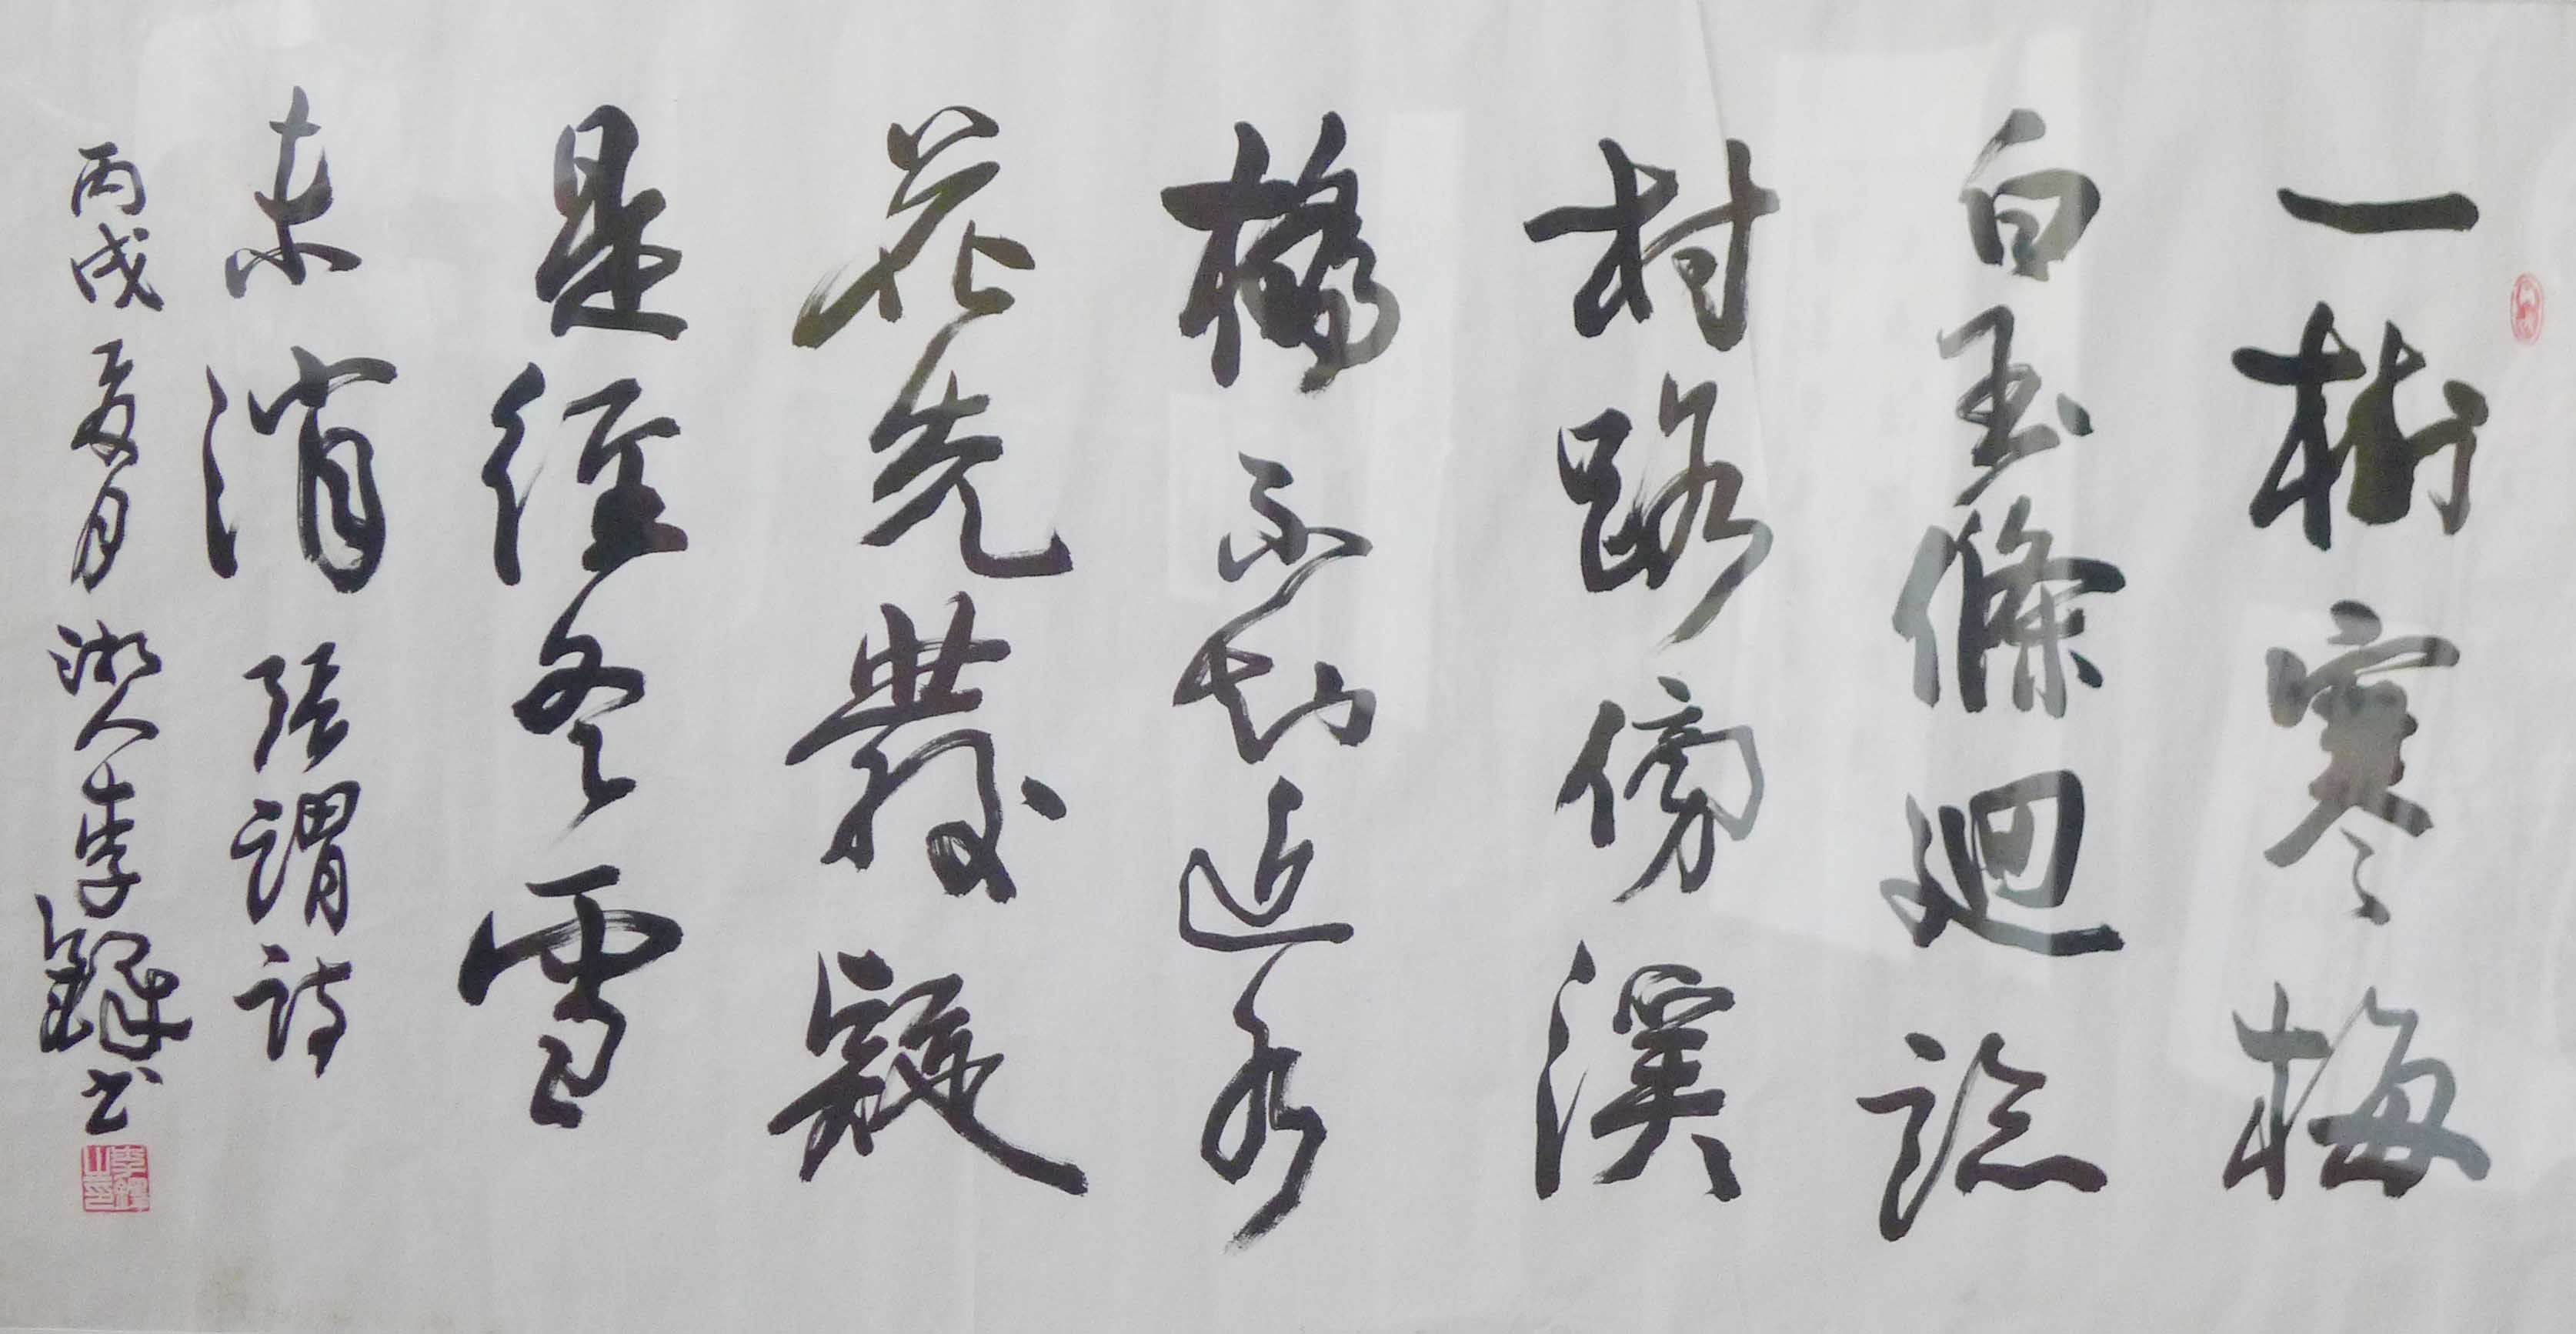 一樹寒梅
白玉條廻臨
村路傍溪
橋不知近水
花先發疑
是經冬雪
未消 張謂詩
丙戌夏月湘人李鐸书